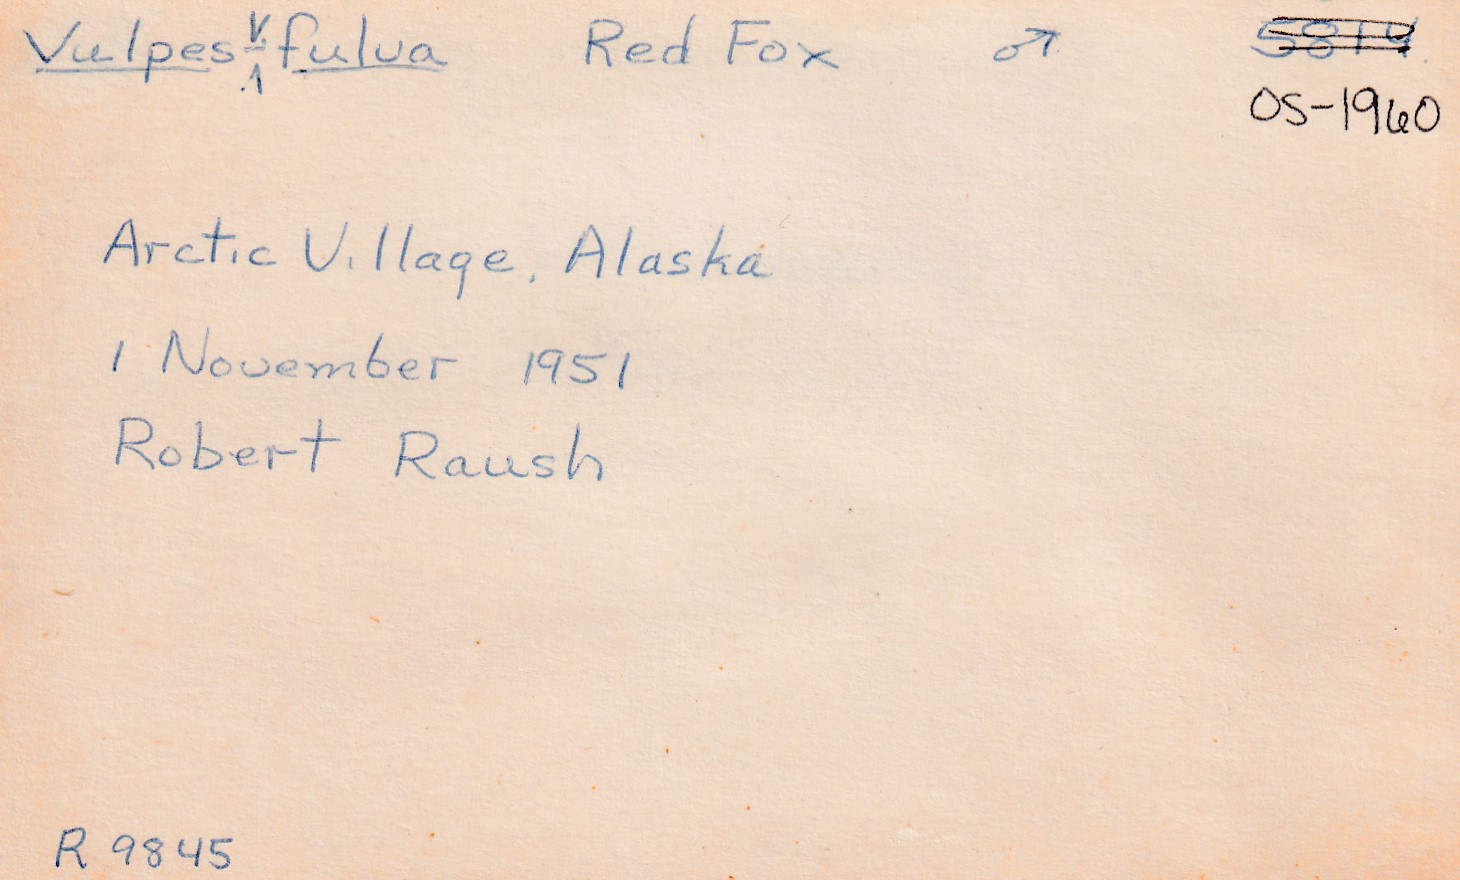 Vulpes v. fulva Red Fox ♂ 5814.
OS-1960
Arctic Village, Alaska
1 November 1951
Robert Raush
R 9845